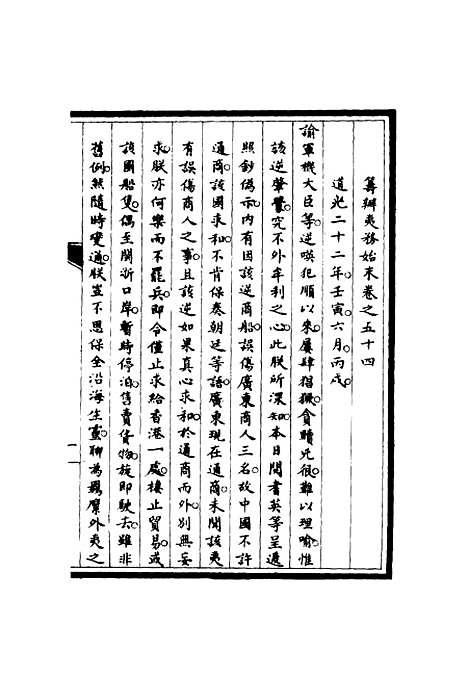 籌辦夷務始末卷之五十四
道光二十二年壬寅六月丙戌
諭軍機大臣等逆㗸犯順以來屢肆猖獗貪贖兇很難以理喻惟
該逆肇釁究不外牟利之心此朕所深知本日閱耆英等呈遞
照鈔偽示內有因該逆商船誤傷廣東商人三名故中國不許
通商該國求和不肯保奏朝廷等語廣東現在通商未聞該夷
有誤傷商人之事且該逆如果真心求和於通商而外別無妄
求朕亦何樂而不罷兵即令僅止求給香港一處棲止貿易或
該國船隻偶至閩浙口岸暫時停泊售賣貨物旋即駛去雖非
舊例然隨時變通朕豈不思保全沿海生靈聊為羈縻外夷之
一